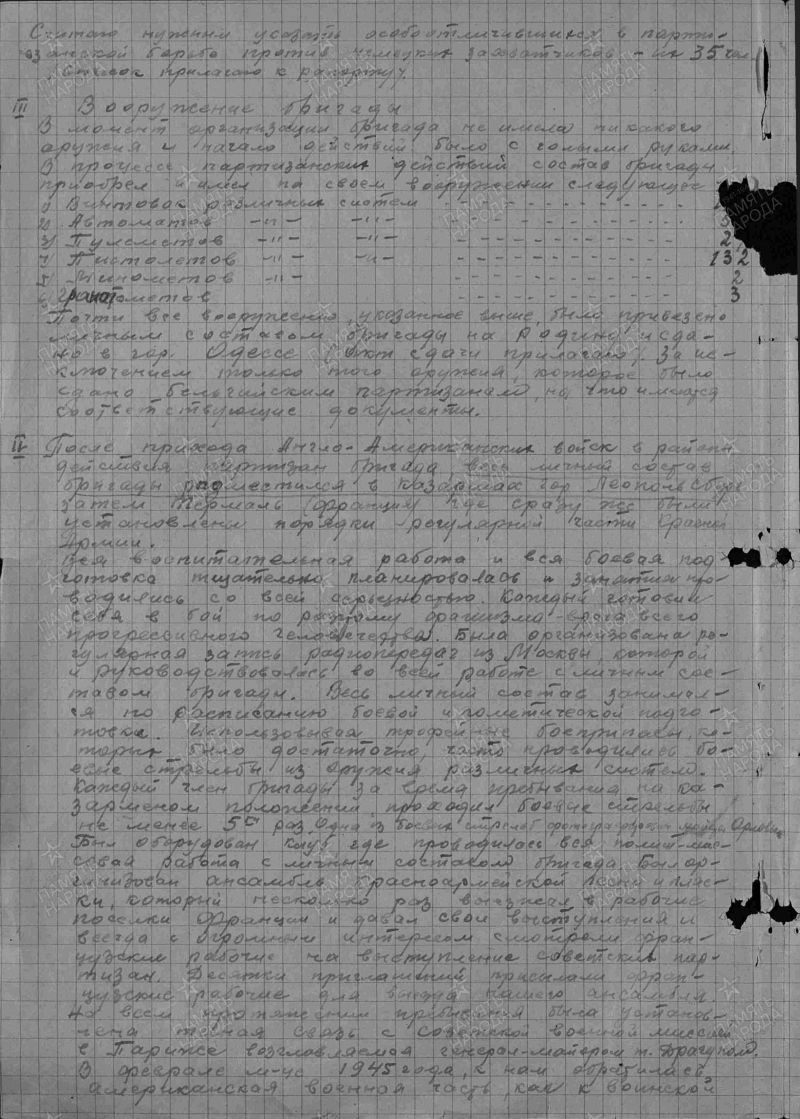 Считаю нужным указать особоотличившихся в парти-
занской борьбе против немецких захватчиков - их 35 чел.
список прилагаю к рапорту.
III Вооружение бригады
В момент организации бригада не имела никакого
оружия и начало действий было с голыми руками.
В процессе партизанских действий состав бригады
приобрел и имел на своем вооружении следующее
1) Винтовок различных систем
2) Автоматов -"- -"-
3) Пулеметов -"- -"- 2
4) Пистолетов -"- -"- 132
5) Минометов -"- 2
6) Гранатометов 3
Почти все вооружение, указанное выше, было привезено
личным составом бригады на Родину и сда-
но в гор. Одессе (Акт сдачи прилагаю) за ис-
ключением только того оружия, которое было
сдано бельгийским партизанам, на что имеются
соответствующие документы.
IV После прихода Англо-Американских войск в район
действия партизан бригада, весь личный состав
бригады разместился в казармах гор. Леопольсбург
затем (Франция) где сразу же были
установлены порядки регулярной части Красной
Армии.
Вся воспитательная работа и вся боевая под-
готовка тщательно планировалась и занятия про-
водились со всей серьезностью. Каждый готовил
себя в бой по разгрому фашизма - врага всего
прогрессивного человечества. Была организована ре-
гулярная запись радиопередач из Москвы, которой
и руководствовалась во всей работе с личным сос-
тавом бригады. Весь личный состав занимал-
ся по расписанию боевой и политической подго-
товке. Используя трофейные боеприпасы, ко-
торых было достаточно, часто проводились бо-
евые стрельбы из оружия различных систем.
Каждый член бригады за время пребывания на ка-
зарменом положении, проходил боевые стрельбы
не менее 5ти раз. Одна из боевых стрельб фотографирован майор Орлов
Был оборудован клуб где проводилась вся полит-мас-
совая работа с личным составом бригады. Был ор-
ганизован ансамбль красноармейской песни и пляс-
ки, который несколько раз выезжал в рабочие
поселки Франции и давал свои выступления и
всегда с огромным интересом смотрели фран-
цузские рабочие на выступление советских пар-
тизан. Десятки приглашений присылали фран-
цузские рабочие для выезда нашего ансамбля.
На всем протяжении пребывания была установ-
лена тесная связь с советской военной миссией
в Париже возглавляемая генерал-майором т. Драгуном.
В феврале м-це 1945 года, к нам обратилась
американская военная часть, как к воинской